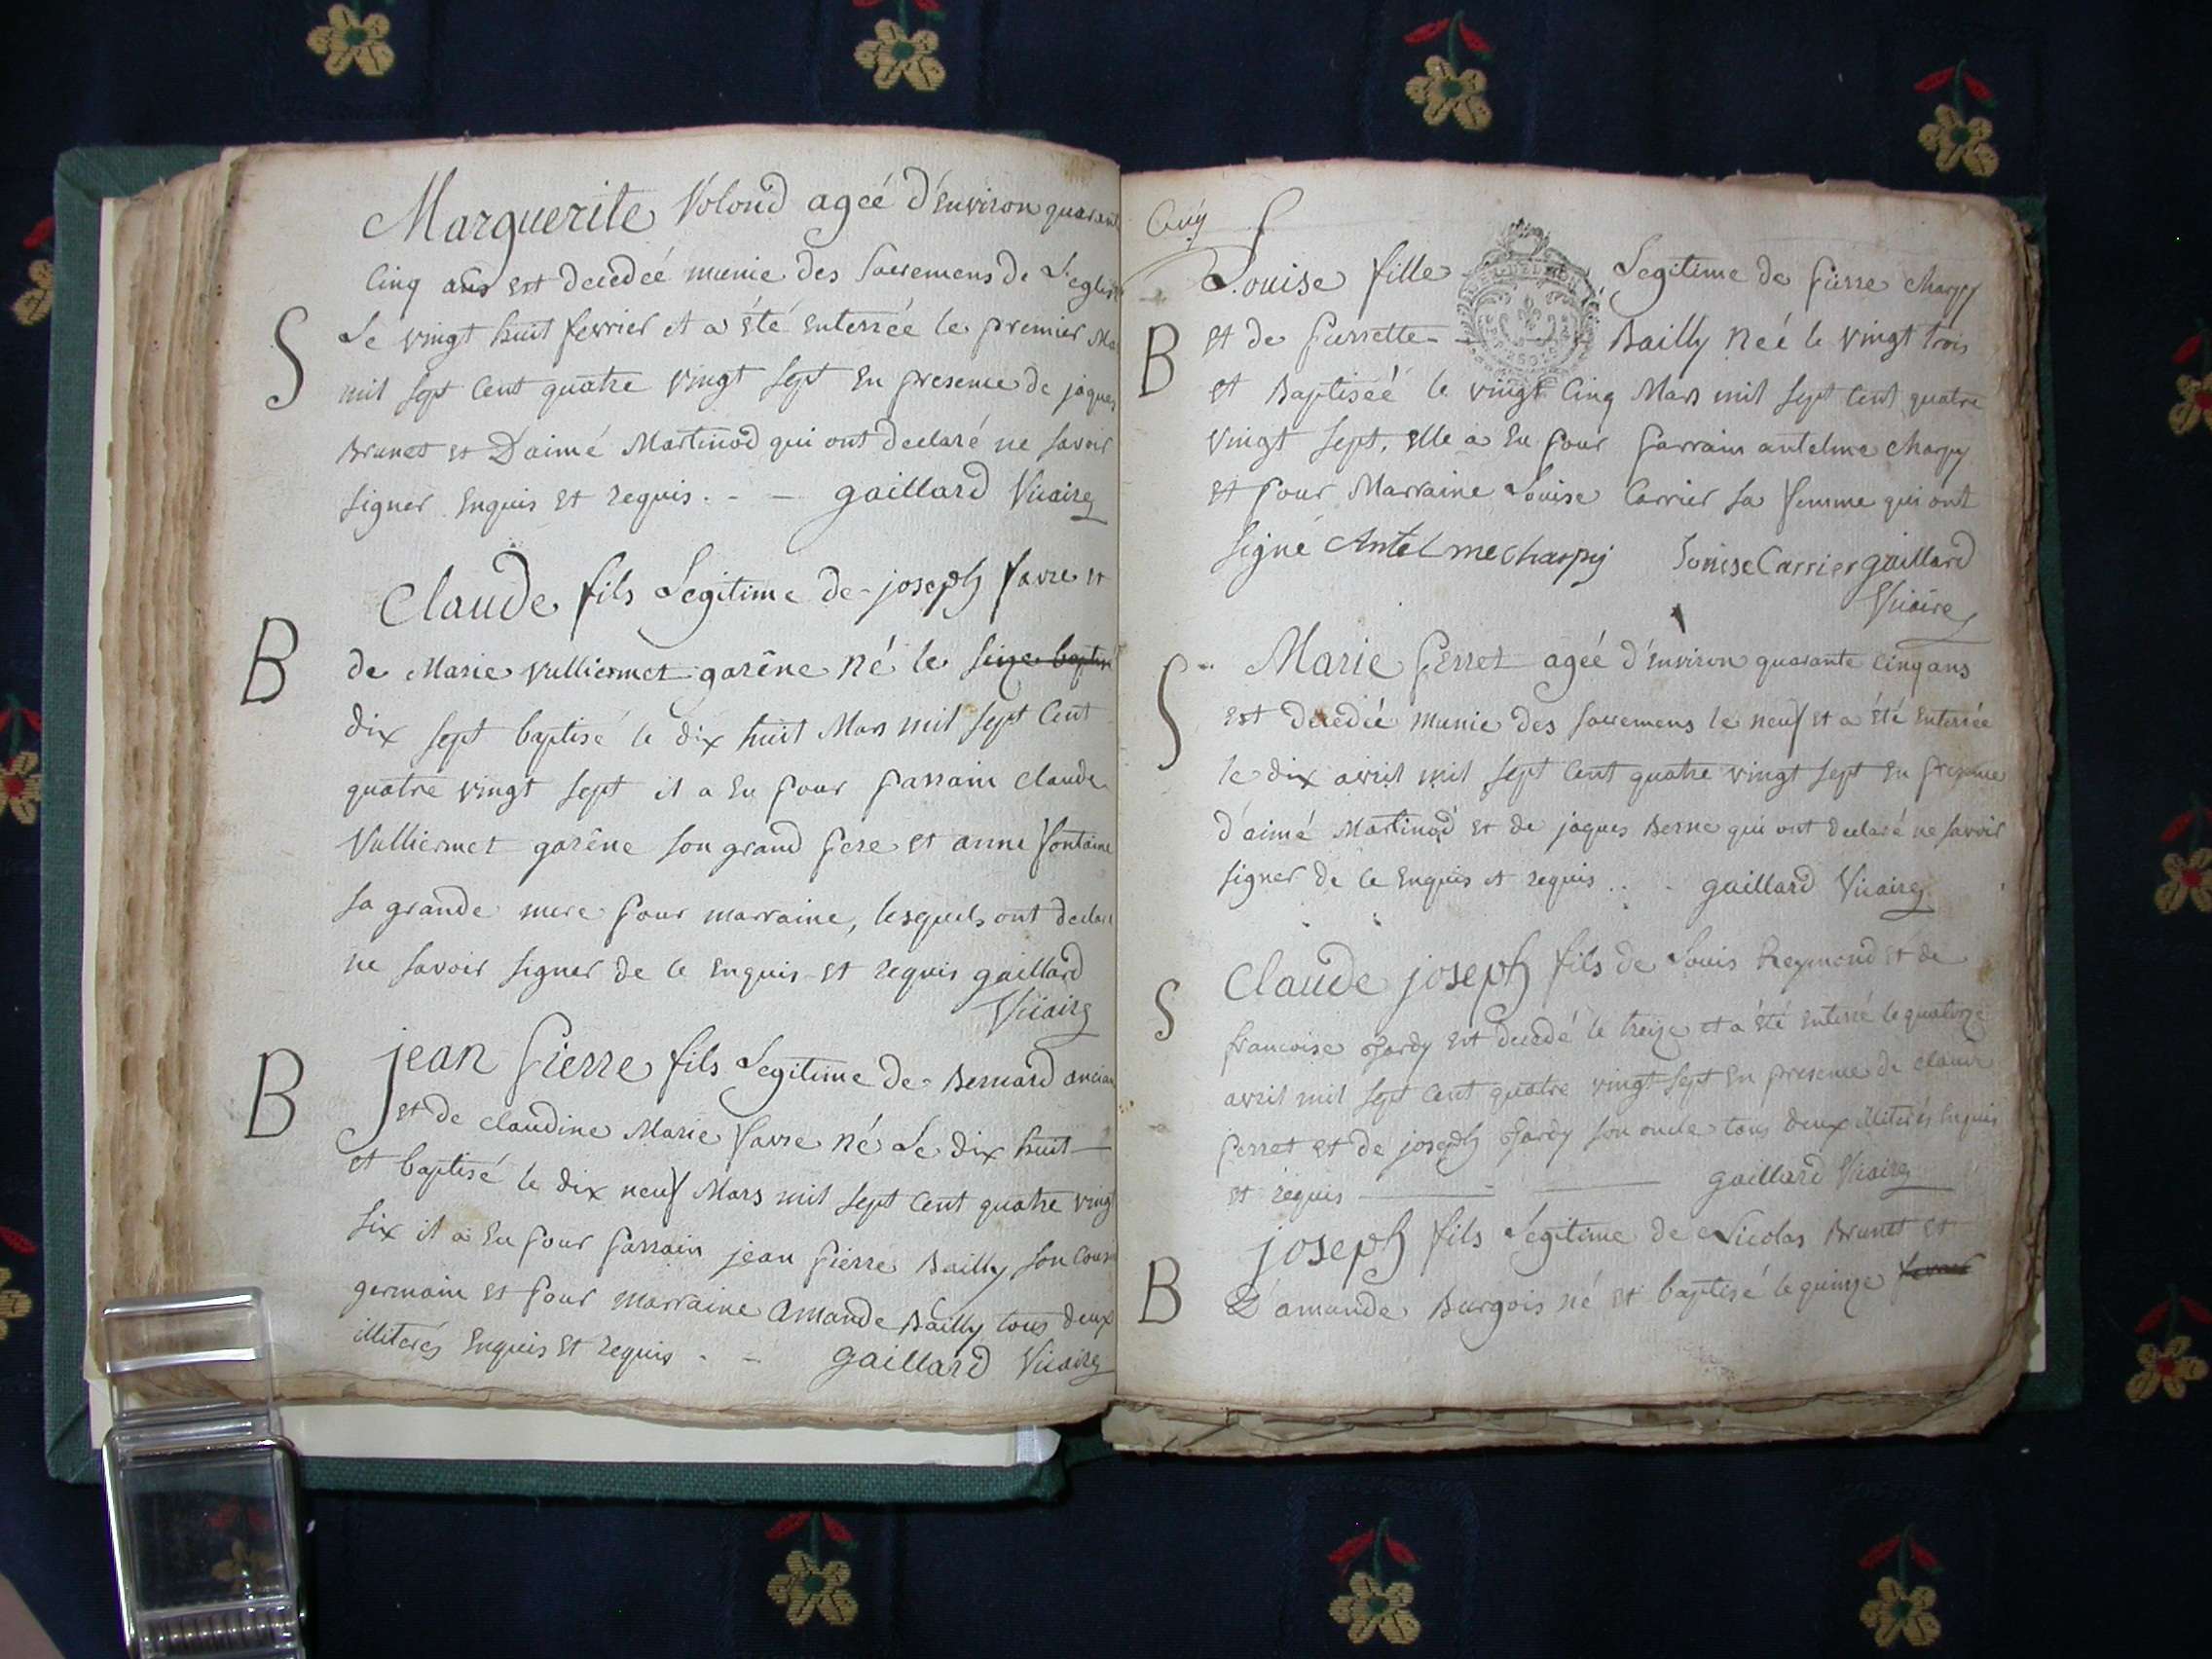 Marguerite Volond ageé d'environ quarante
Cinq ans est decedeé munie des Sacremens de L'eglise
S
Le vingt huit fevrier et a été enterrée le premier Mars
mil sept Cent quatre vingt sept en presence de jaques
Brunet et D'aimé Martinod qui ont declaré ne savoir
signer enquis et requis. - - gaillard Vicaire
Claude fils Legitime de joseph favre et
B
de Marie Vulliermet garêne né le seize baptisé
dix sept baptisé le dix huit Mars mil sept Cent
quatre vingt sept il a eu pour parrain Claude
Vulliermet garêne son grand pere et anne fontaine
sa grande mere pour marraine, lesquels ont declaré
ne savoir signer de ce enquis et requis gaillard
Vicaire
jean pierre fils Legitime de Bernard ancian
B
et de claudine Marie favre né Le dix huit
et baptisé le dix neuf Mars mil sept Cent quatre vingt
six il a eu pour parrain jean pierre Bailly son Cousin
germain et pour marraine amande Bailly tous deux
illiterés enquis et requis - - gaillard Vicaire
Louise fille Legitime de pierre charpy
B
et de pierrette Bailly neé le vingt trois
et Baptiseé le vingt Cinq Mars mil sept Cent quatre
vingt sept. elle a eu pour parrain antelme charpy
et pour Marraine Louise Carrier sa femme qui ont
signé Antelme charpy Louise Carrier gaillard
Vicaire
Marie perret ageé d'environ quarante Cinq ans
S
est decedeé munie des sacremens le neuf et a été enterrée
le dix avril mil sept Cent quatre vingt sept en presence
d'aimé Martinod et de jaques Berne qui ont declaré ne savoir
signer de ce enquis et requis . . . gaillard Vicaire
Claude joseph fils de Louis Reymond et de
S
francoise Jardy est decedé le treize et a été enterré le quatorze
avril mil sept Cent quatre vingt sept en presence de claude
perret et de joseph Jardy son oncle tous deux illiterés enquis
et requis gaillard Vicaire
joseph fils Legitime de Nicolas Brunet et
B
D'amande Burgois né et baptisé le quinze